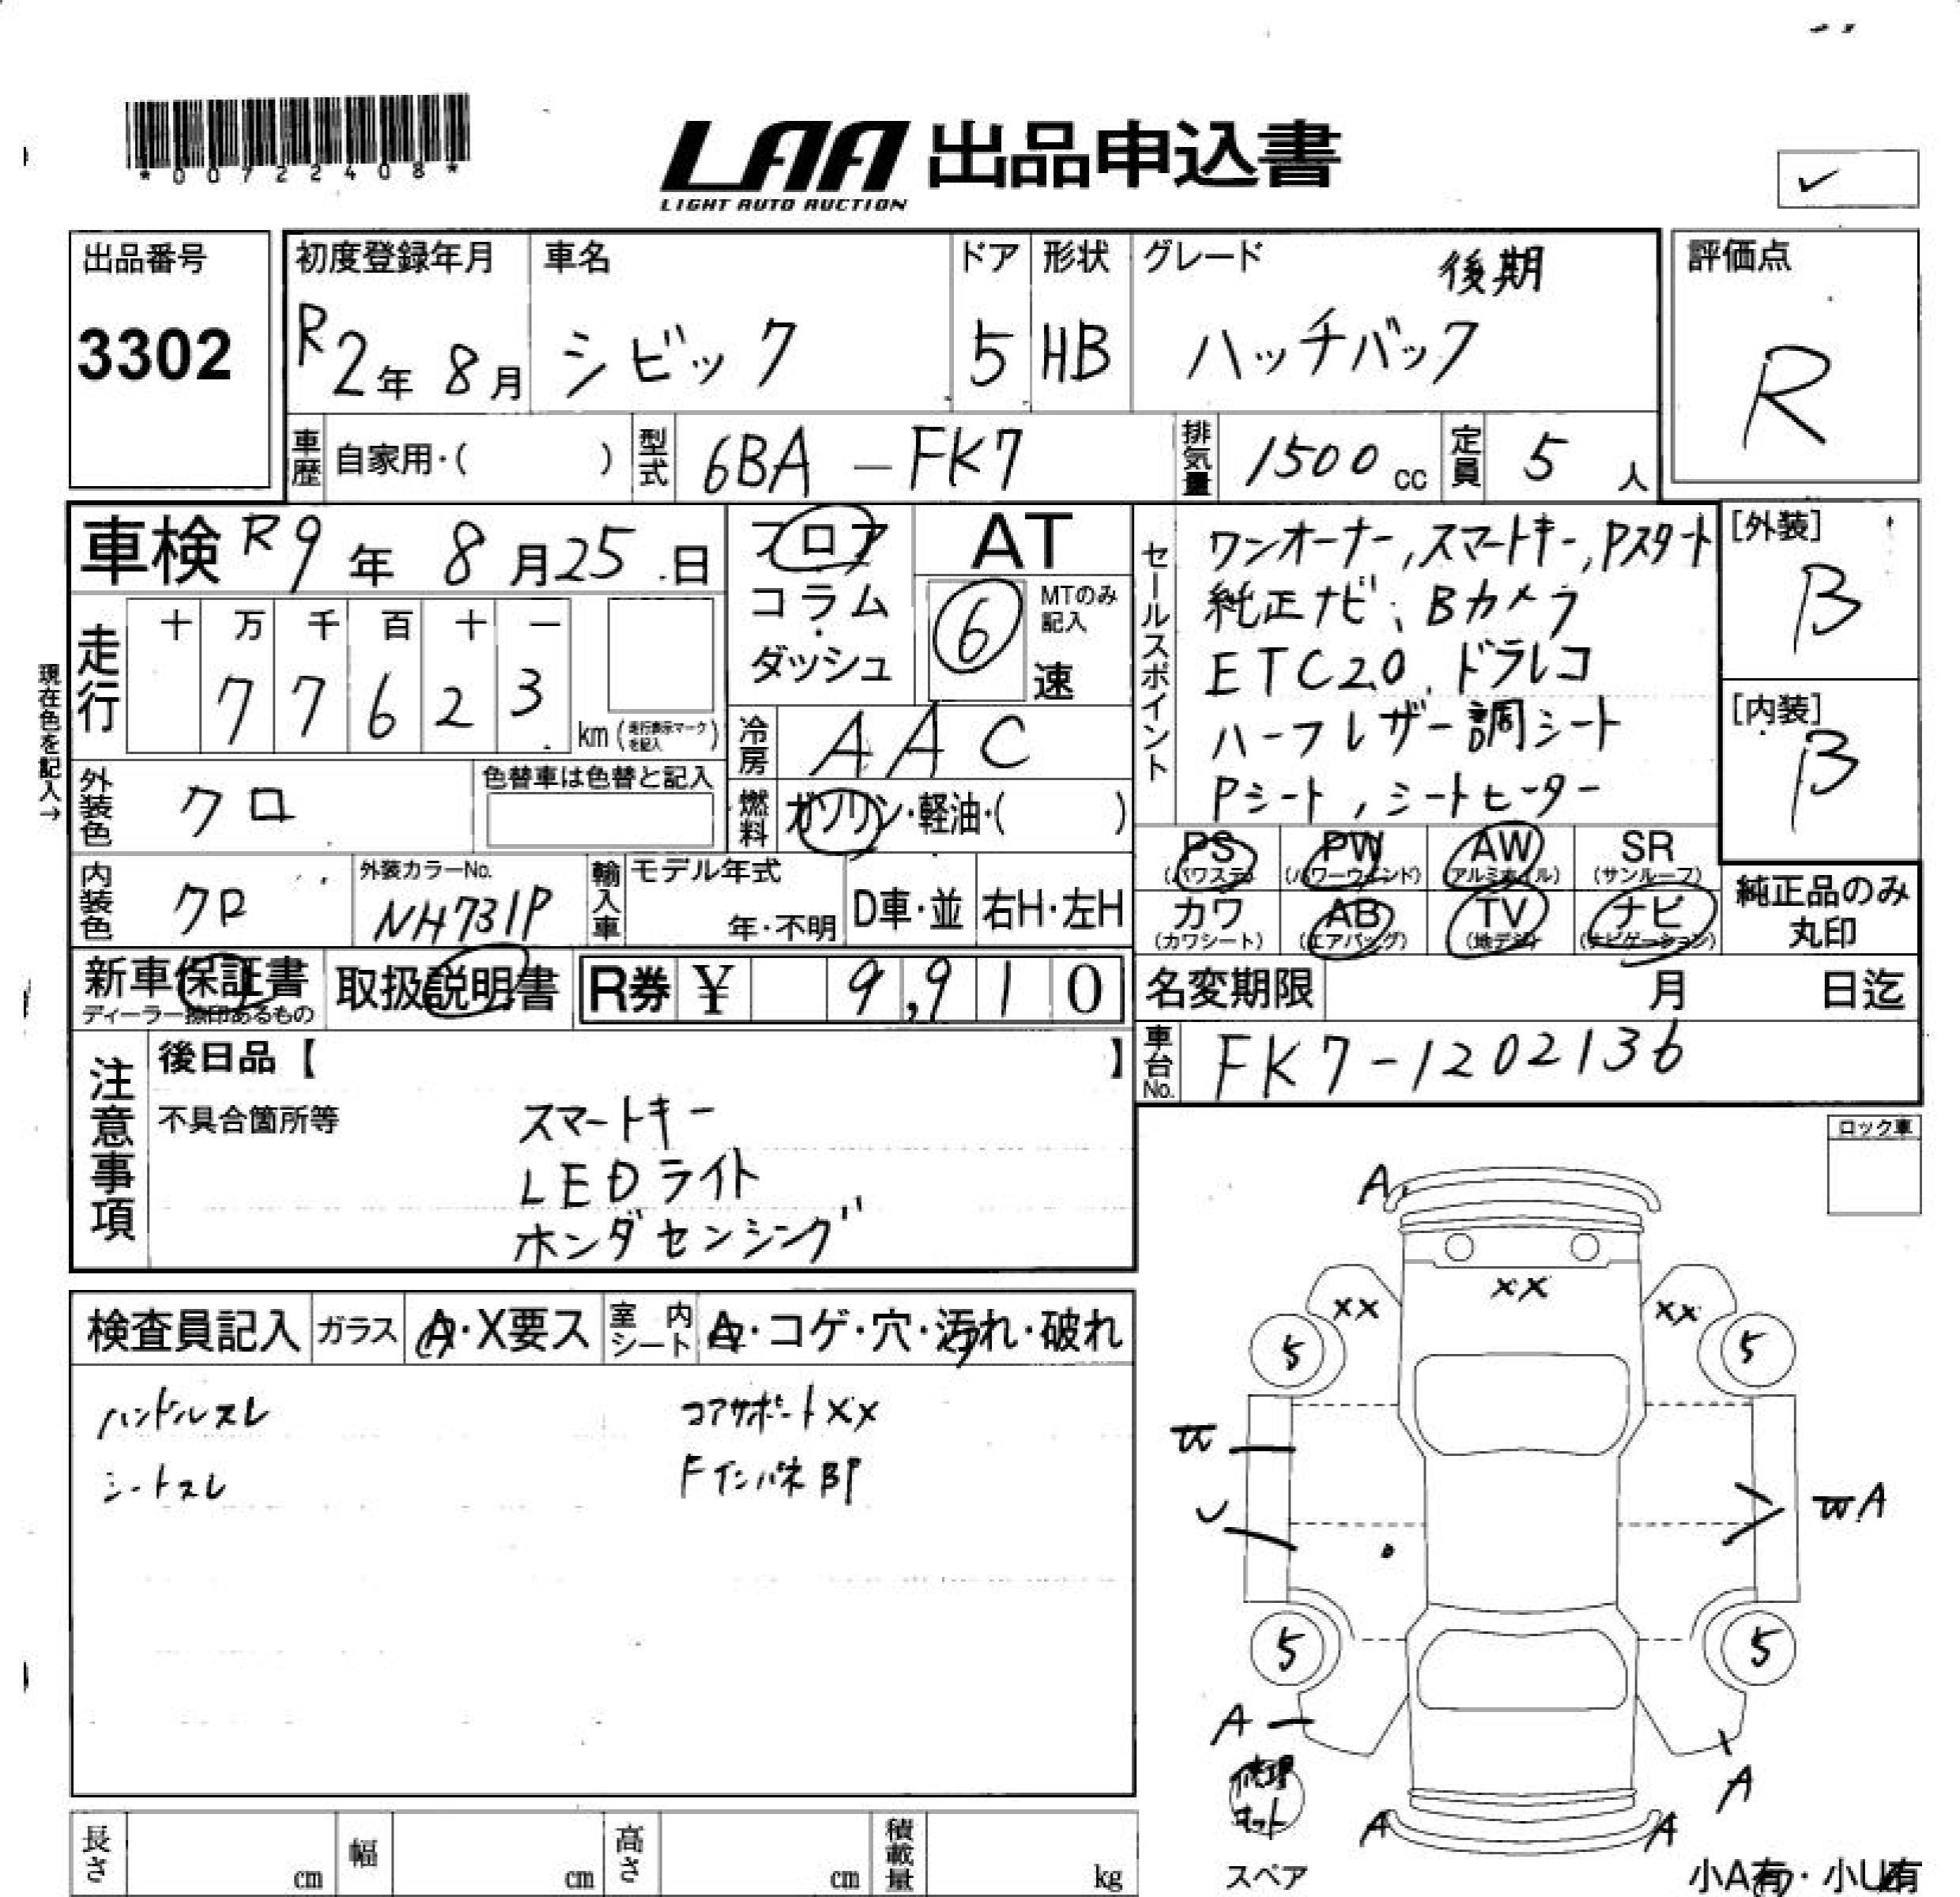 *00722408*
LAA 出品申込書
LIGHT AUTO AUCTION
✓
出品番号
3302
初度登録年月
R2年 8月
車名
シビック
ドア
5
形状
HB
グレード 後期
ハッチバック
評価点
R
車歴 自家用・( )
型式 6BA-FK7
排気量 1500 cc
定員 5 人
車検 R9年 8月25日
フロア
コラム
・
ダッシュ
AT
6
MTのみ
記入
速
現在色を記入→
走行
十 万 千 百 十 一
7 7 6 2 3
km(走行表示マークを記入)
冷房 AAC
燃料 ガソリン・軽油・( )
外装色 クロ
色替車は色替と記入
内装色 クロ
外装カラーNo.
NH731P
輸入車
モデル年式
年・不明
D車・並
右H・左H
セールスポイント
ワンオーナー,スマートキー,Pスタート
純正ナビ,Bカメラ
ETC2.0,ドラレコ
ハーフレザー調シート
Pシート,シートヒーター
[外装]
B
[内装]
B
PS
(パワステ)
PW
(パワーウィンド)
AW
(アルミホイル)
SR
(サンルーフ)
カワ
(カワシート)
AB
(エアバッグ)
TV
(地デジ)
ナビ
(ナビゲーション)
純正品のみ
丸印
新車保証書
ディーラー捺印あるもの
取扱説明書
R券 ¥ 9,910
名変期限 月 日迄
車台No. FK7-1202136
注意事項
後日品【 】
不具合箇所等
スマートキー
LEDライト
ホンダセンシング
ロック車
検査員記入
ガラス A・X要ス
室内シート
・コゲ・穴・汚れ・破れ
ハンドルスレ
シートスレ
コアサポートXX
FインパネBP
A
XX
XX
XX
5
5
W
U
WA
5
5
A
A
修理
キット
A
A
スペア
小A有・小U有
長さ cm
幅 cm
高さ cm
積載量 kg